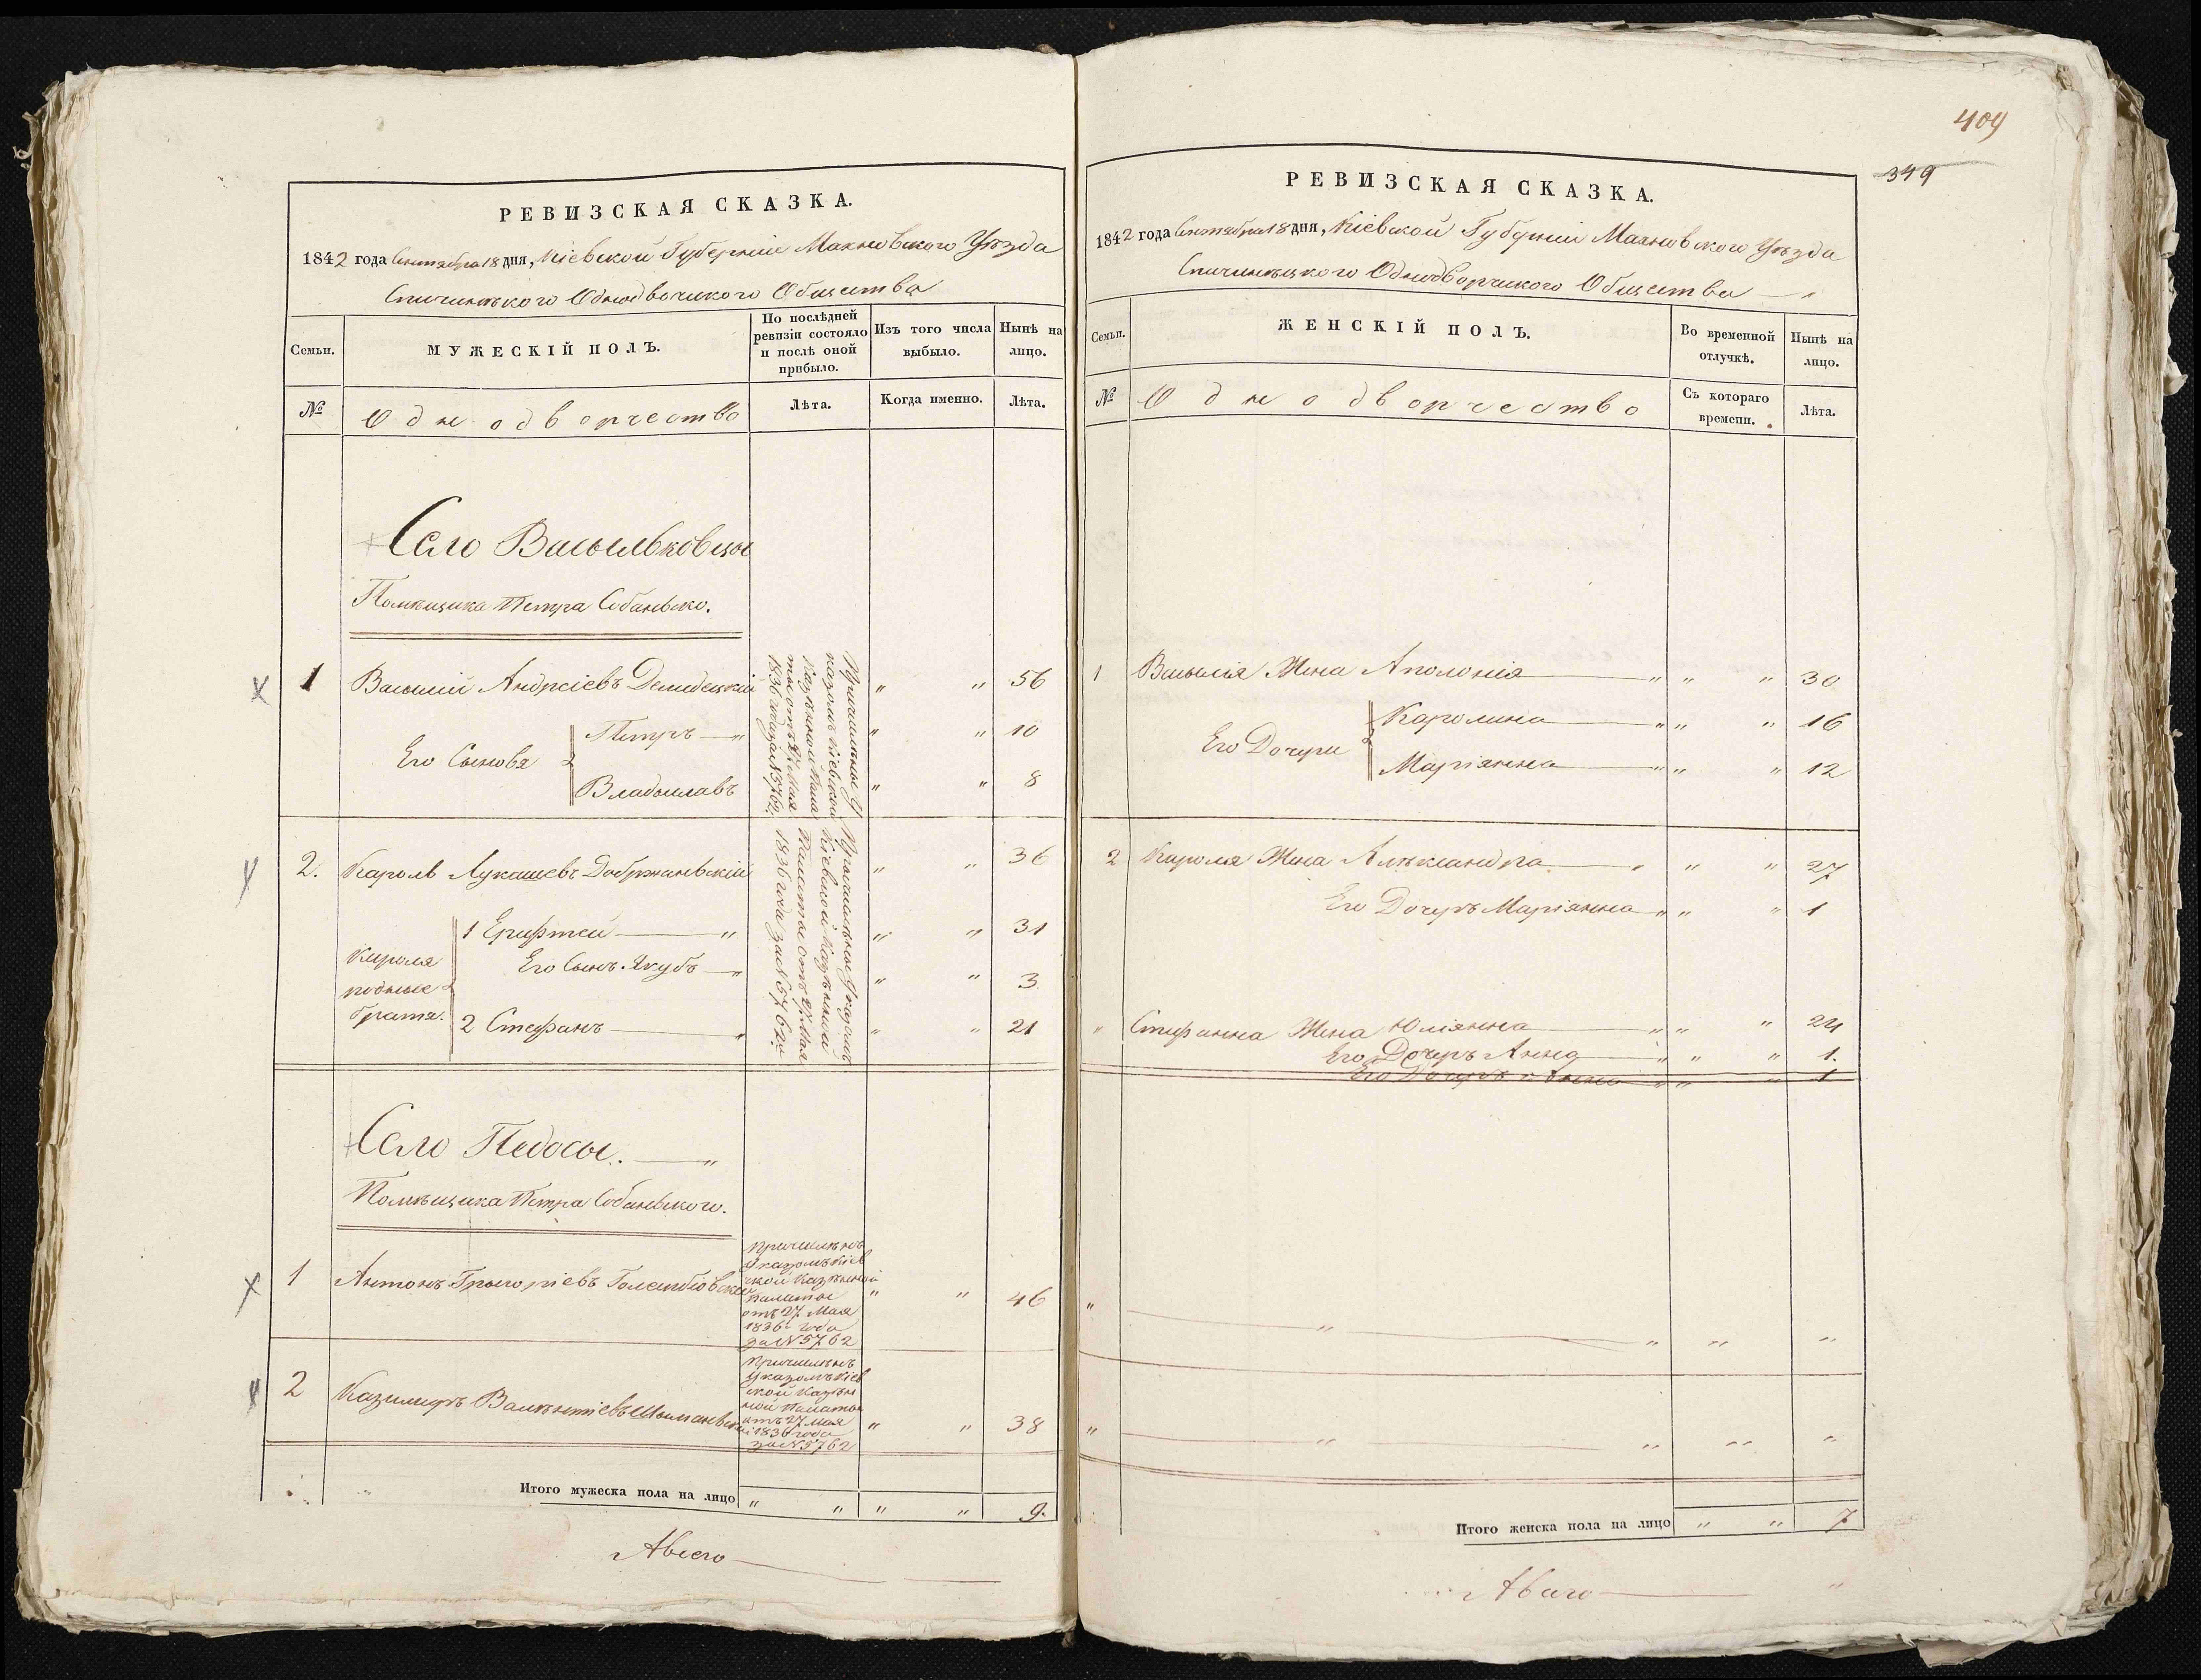 РЕВИЗСКАЯ СКАЗКА.
1842 года Сентября 18 дня, Кіевской Губерніи Махновского Уѣзда
Спичинецкого Однодворчикого Общества
Семьи.
МУЖЕСКІЙ ПОЛЪ.
По послѣдней ревизіи состояло и послѣ оной прибыло.
Изъ того числа выбыло.
Нынѣ на лицо.
№
Однодворчество
Лѣта.
Когда именно.
Лѣта.
Село Васильковцы
Помѣщика Петра Собаньско.
1 Василий Андреіевъ Демидецкій " " 56
Его Сыновя
Петръ " " " 10
Владыславъ " " 8
Причисленные Указомъ Кіевской Казенной Палаты отъ 27 Мая 1836 года за №5762.
2. Кароль Лукашевъ Добржаньвскій " " 36
Кароля родные братя.
1 Ерифтей " " " 31
Его Сынъ Якубъ " " " 3
2 Стефанъ " " " 21
Причисленные Указомъ Кіевской Казенной Палаты отъ 27 Мая 1836 года за №5762
Село Педосы. "
Помѣщика Петра Собаньского.
1 Антонъ Григоріевъ Голембіовский
Причисленъ
Указомъ Кіев
ской Казенной
Палаты
отъ 27 Мая
1836 года
за №5762
" " 46
2 Казимиръ Валентіевъ
Причисленъ
Указомъ Кіев
ской Казен
ной Палаты
отъ 27 Мая
1836 года
за №5762
" " 38
Итого мужеска пола на лицо " " " " 9.
409
349
РЕВИЗСКАЯ СКАЗКА.
1842 года Сентября 18 дня, Кіевской Губерніи Махновского Уѣзда
Спичинецкого Однодворчикого Общества
Семьи.
ЖЕНСКІЙ ПОЛЪ.
Во временной отлучкѣ.
Нынѣ на лицо.
№
Однодворчество
Съ котораго времени.
Лѣта.
1 Василія Жена Аполонія " " " 30
Его Дочери
Каролина " " " 16
Маріянна " " " 12
2 Кароля Жена Александра " " " 27
Его Дочерь Маріянна " " " 1
" Стефанна Жена Юліянна " " " 24
Его Дочерь Анна " " " 1.
Его Дочерь Анна " " " 1
" " " " "
" " " " "
Итого женска пола на лицо " " 7